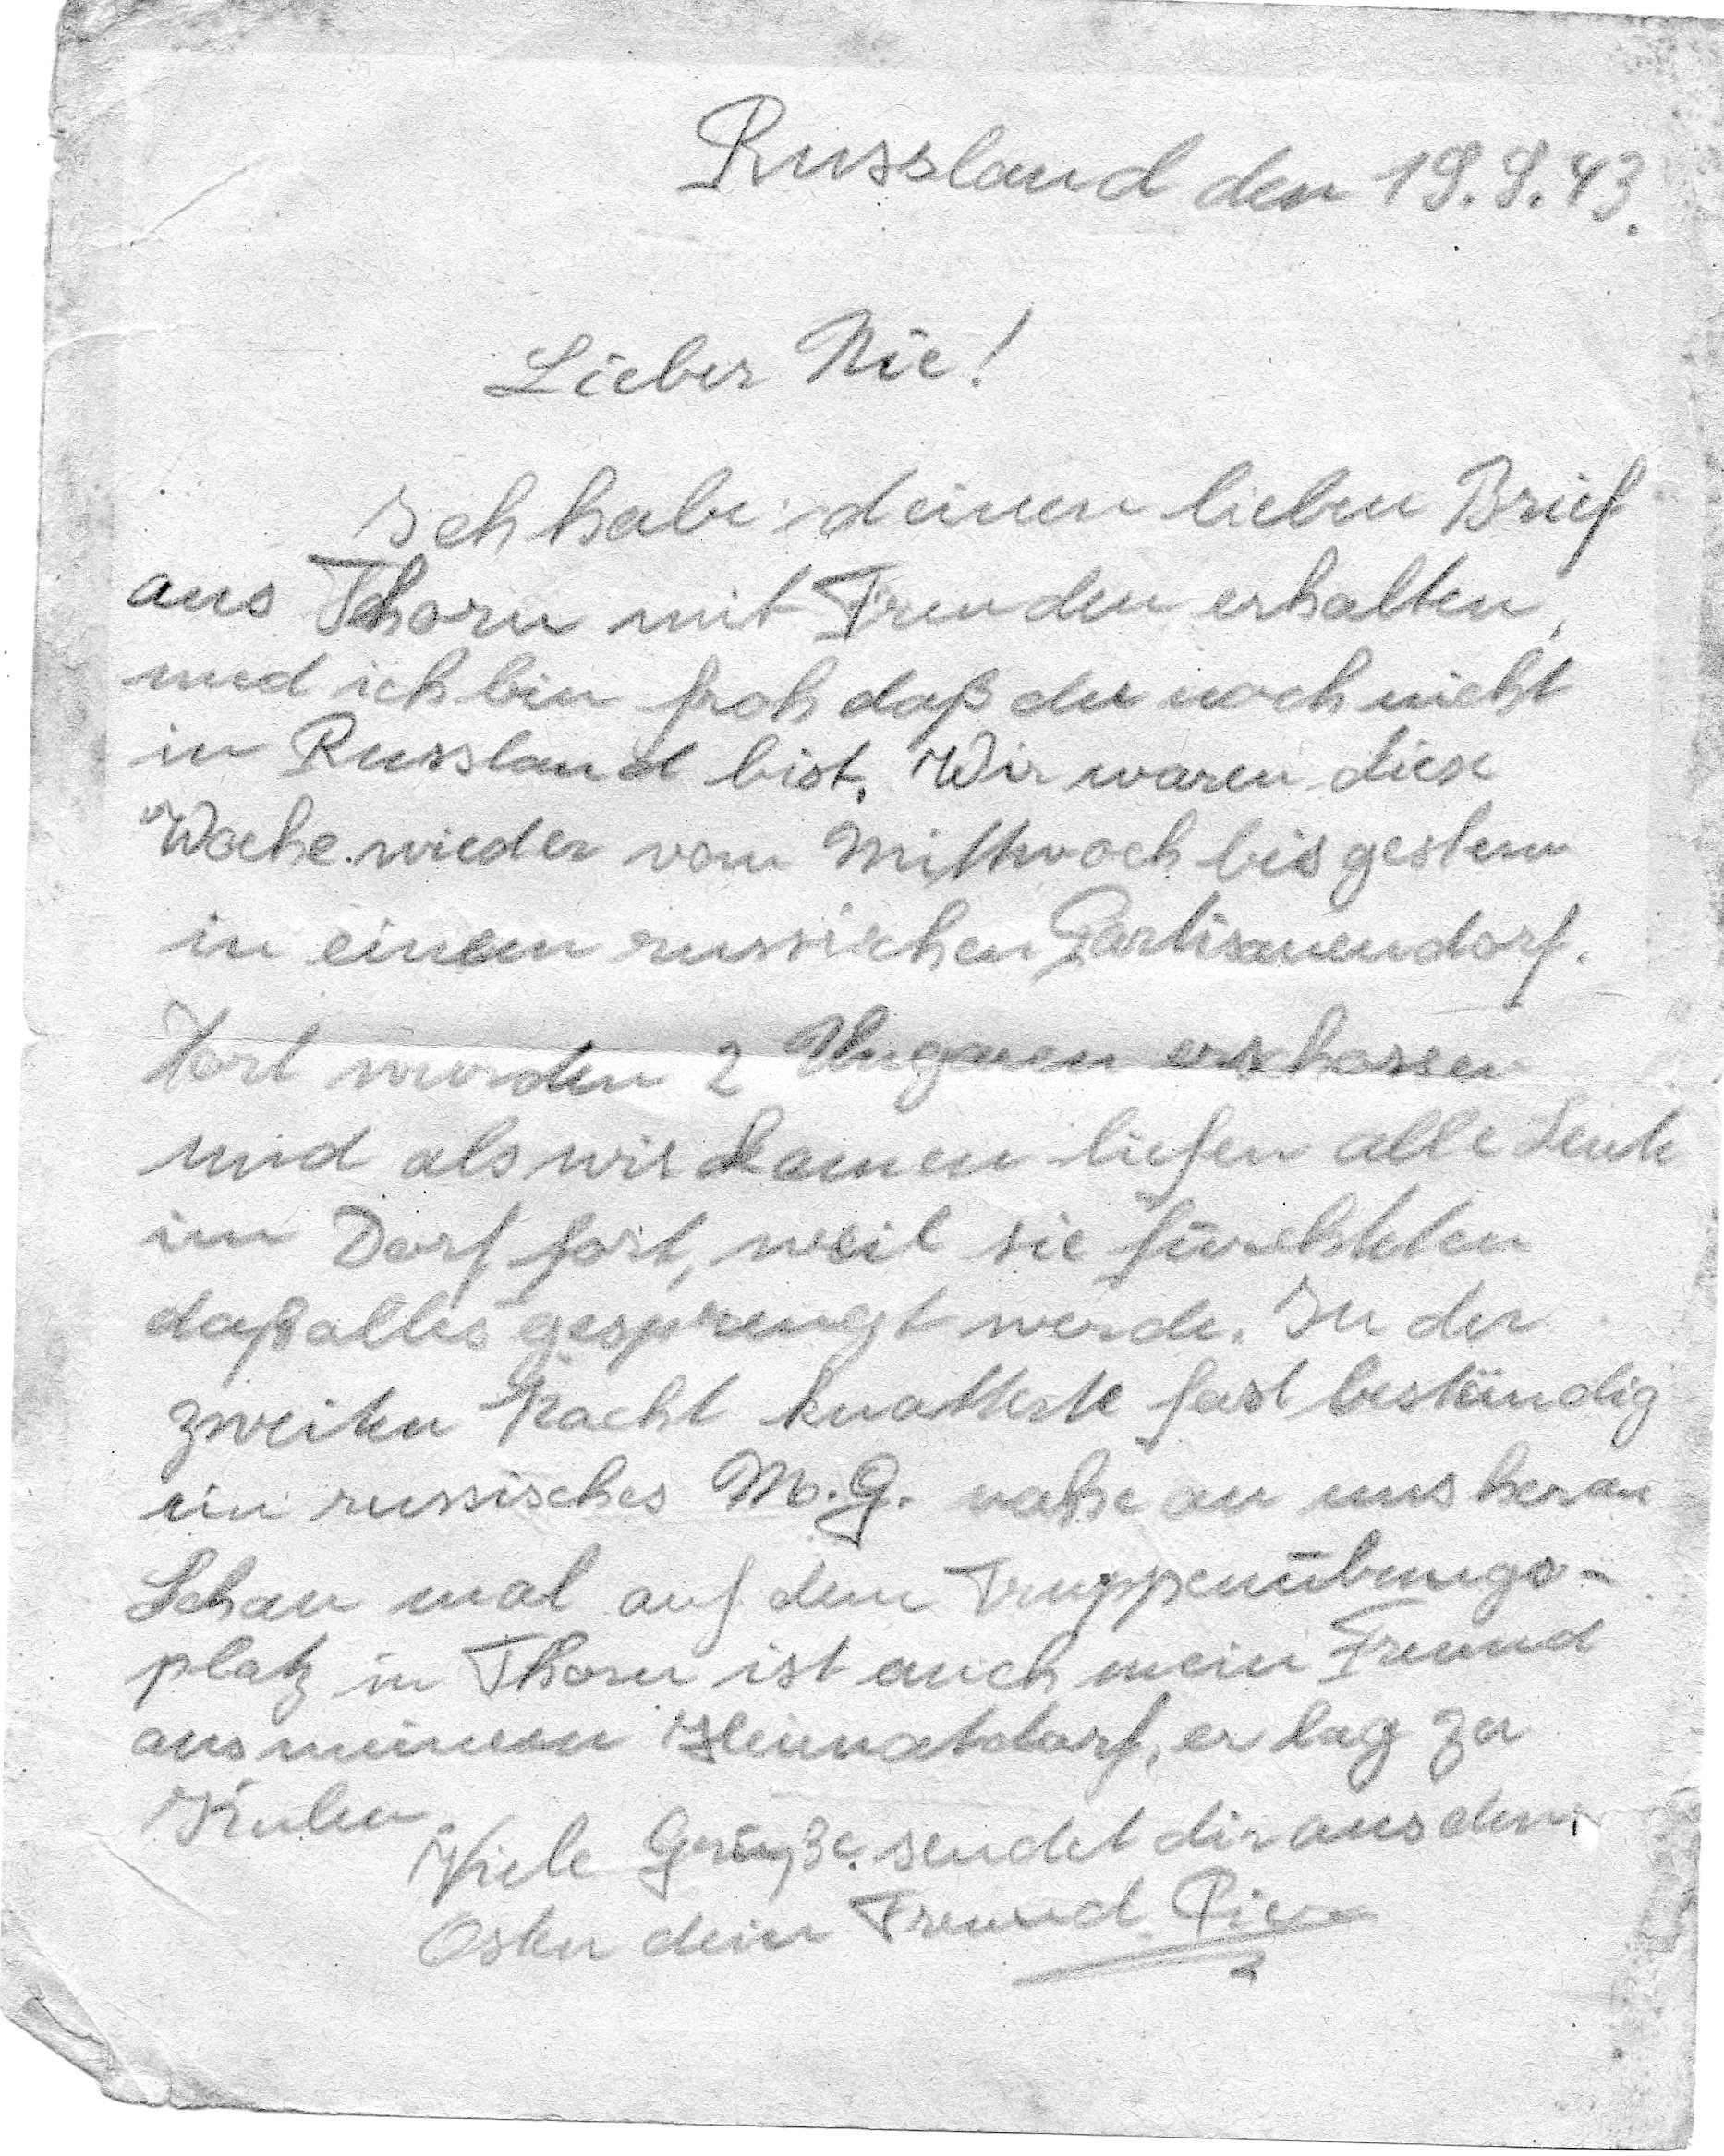 Russland den 19.9.43.
Lieber Nic!
Ich habe deinen lieben Brief
aus Thorn mit Freuden erhalten,
und ich bin froh daß du noch nicht
in Russland bist. Wir waren diese
Woche wieder vom Mittwoch bis gestern
in einem russischen Partisanendorf.
Dort wurden 2 Ungaren erschossen
und als wir kamen liefen alle Leute
im Dorf fort, weil sie fürchteten
daß alles gesprengt werde. In der
zweiten Nacht knatterte fast beständig
ein russisches M.G. nahe an uns heran
Schau mal auf dem Truppenübungs-
platz in Thorn ist auch mein Freund
aus meinem Heimatdorf, er lag zu
Viele Grüße sendet dir aus dem
Osten dein Freund